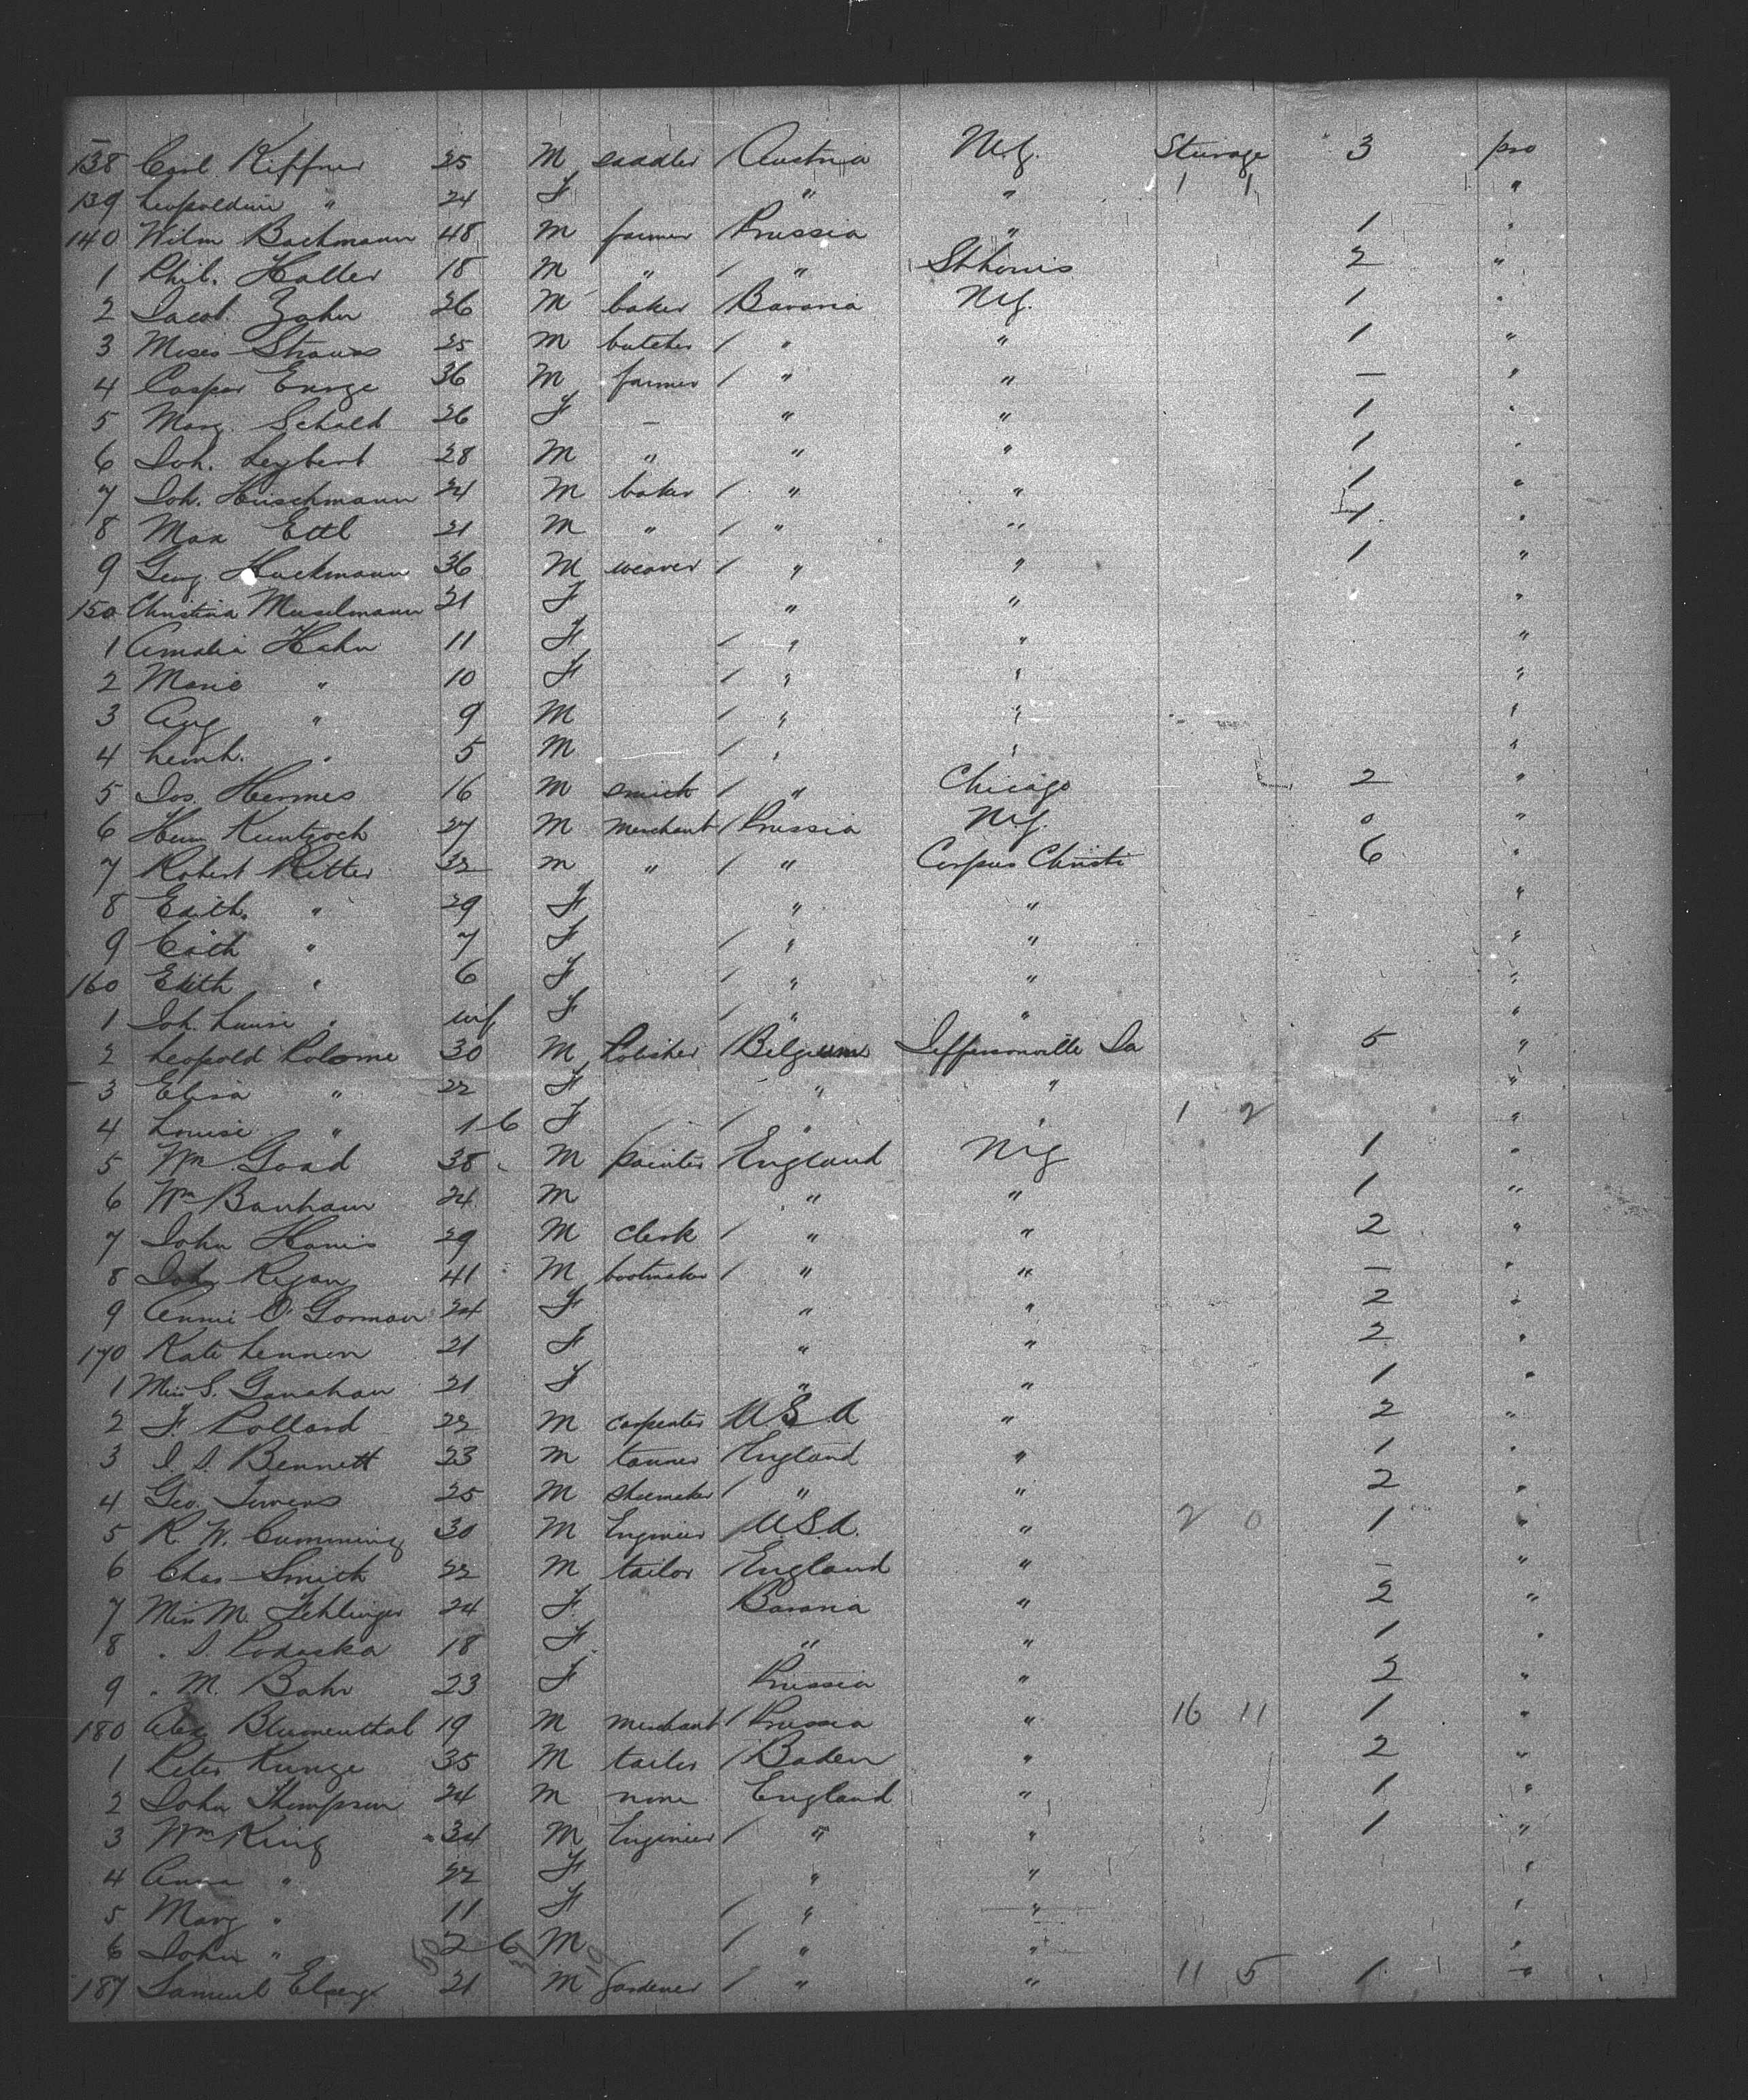 138 Carl Kiffner 25 M saddler / Austria N.Y. Steerage 3 pro
139 Leopoldine " 24 F " " 1 1 "
140 Wilm Bachmann 48 M farmer Prussia " 1 "
1 Phil. Haller 18 M " / " St Louis 2 "
2 Jacob Zahn 26 M baker Bavaria N.Y. 1 "
3 Moses Strauss 25 M butcher / " " 1 "
4 Caspar 36 M farmer / " " — "
5 Marg. Schald 26 F — " " 1 "
6 Joh. Leybert 28 M " " " 1 "
7 Joh. Hirschmann 24 M baker / " " 1 "
8 Max Ettl 21 M " / " " 1 "
9 Georg Huckmann 36 M weaver / " " 1 "
150 Christina Muselmann 21 F " " "
1 Amalia Hahn 11 F / " " "
2 Marie " 10 F / " " "
3 Aug " 9 M / " " "
4 " 5 M / " " "
5 Jos. Hermes 16 M smith / " Chicago 2 "
6 Herm Kuntzoch 27 M merchant / Prussia N.Y. 0 "
7 Robert Ritter 32 M " / " Corpus Christi 6 "
8 Edith " 29 F " " "
9 Cath " 7 F / " " "
160 Edith " 6 F / " " "
1 Joh. Luise " inf F / " " "
2 Leopold Polome 30 M Polisher / Belgium Jeffersonville Ia 5 "
3 Elisa " 22 F " " "
4 Louise " 1 6 F / " " 1 2 "
5 Wm Goad 38 M painter England N.Y. 1 "
6 Wm Banham 24 M " " 1 "
7 John Harris 29 M clerk / " " 2 "
8 John Regan 41 M bootmaker / " " — "
9 Annie O'Gorman 24 F " " 2 "
170 Kate Lennon 21 F " " 2 "
1 Miss S. Ganahan 21 F " " 1 "
2 F. Pollard 22 M carpenter U.S.A " 2 "
3 J. S. Bennett 23 M tanner England " 1 "
4 Geo. 25 M shoemaker / " " 2 "
5 R. W. Cumming 30 M Engineer / U.S.A. " 2 0 1 "
6 Chas Smith 22 M tailor England " — "
7 Miss M. Fehlinger 24 F Bavaria " 2 "
8 " Podeska 18 F " " 1 "
9 " M. Bahr 23 F Prussia " 2 "
180 Alex Blumenthal 19 M merchant / Prussia " 16 11 1 "
1 Peter Kunze 35 M tailor / Baden " 2 "
2 John Thompson 24 M none England " 1 "
3 Wm King 34 M Engineer / " " 1 "
4 Anna " 22 F " " "
5 Marg " 11 F / " " "
6 John " 2 6 M / " " "
187 Samuel 21 M gardener / " " 11 5 1 "